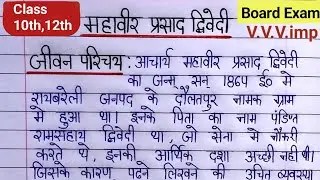 Class
10th,12th
Board Exam
V.V.V.imp
महावीर प्रसाद द्विवेदी
जीवन परिचय : आचार्य महावीर प्रसाद द्विवेदी
का जन्म सन् 1864 ई० मे
रायबरेली जनपद के दौलतपुर नामक ग्राम
मे हुआ था। इनके पिता का नाम पंडित
रामसहाय द्विवेदी था, जो सेना मे नौकरी
करते थे, इनकी आर्थिक दशा अच्छी नही थी।
जिसके कारण पढने लिखने की उचित व्यवस्था